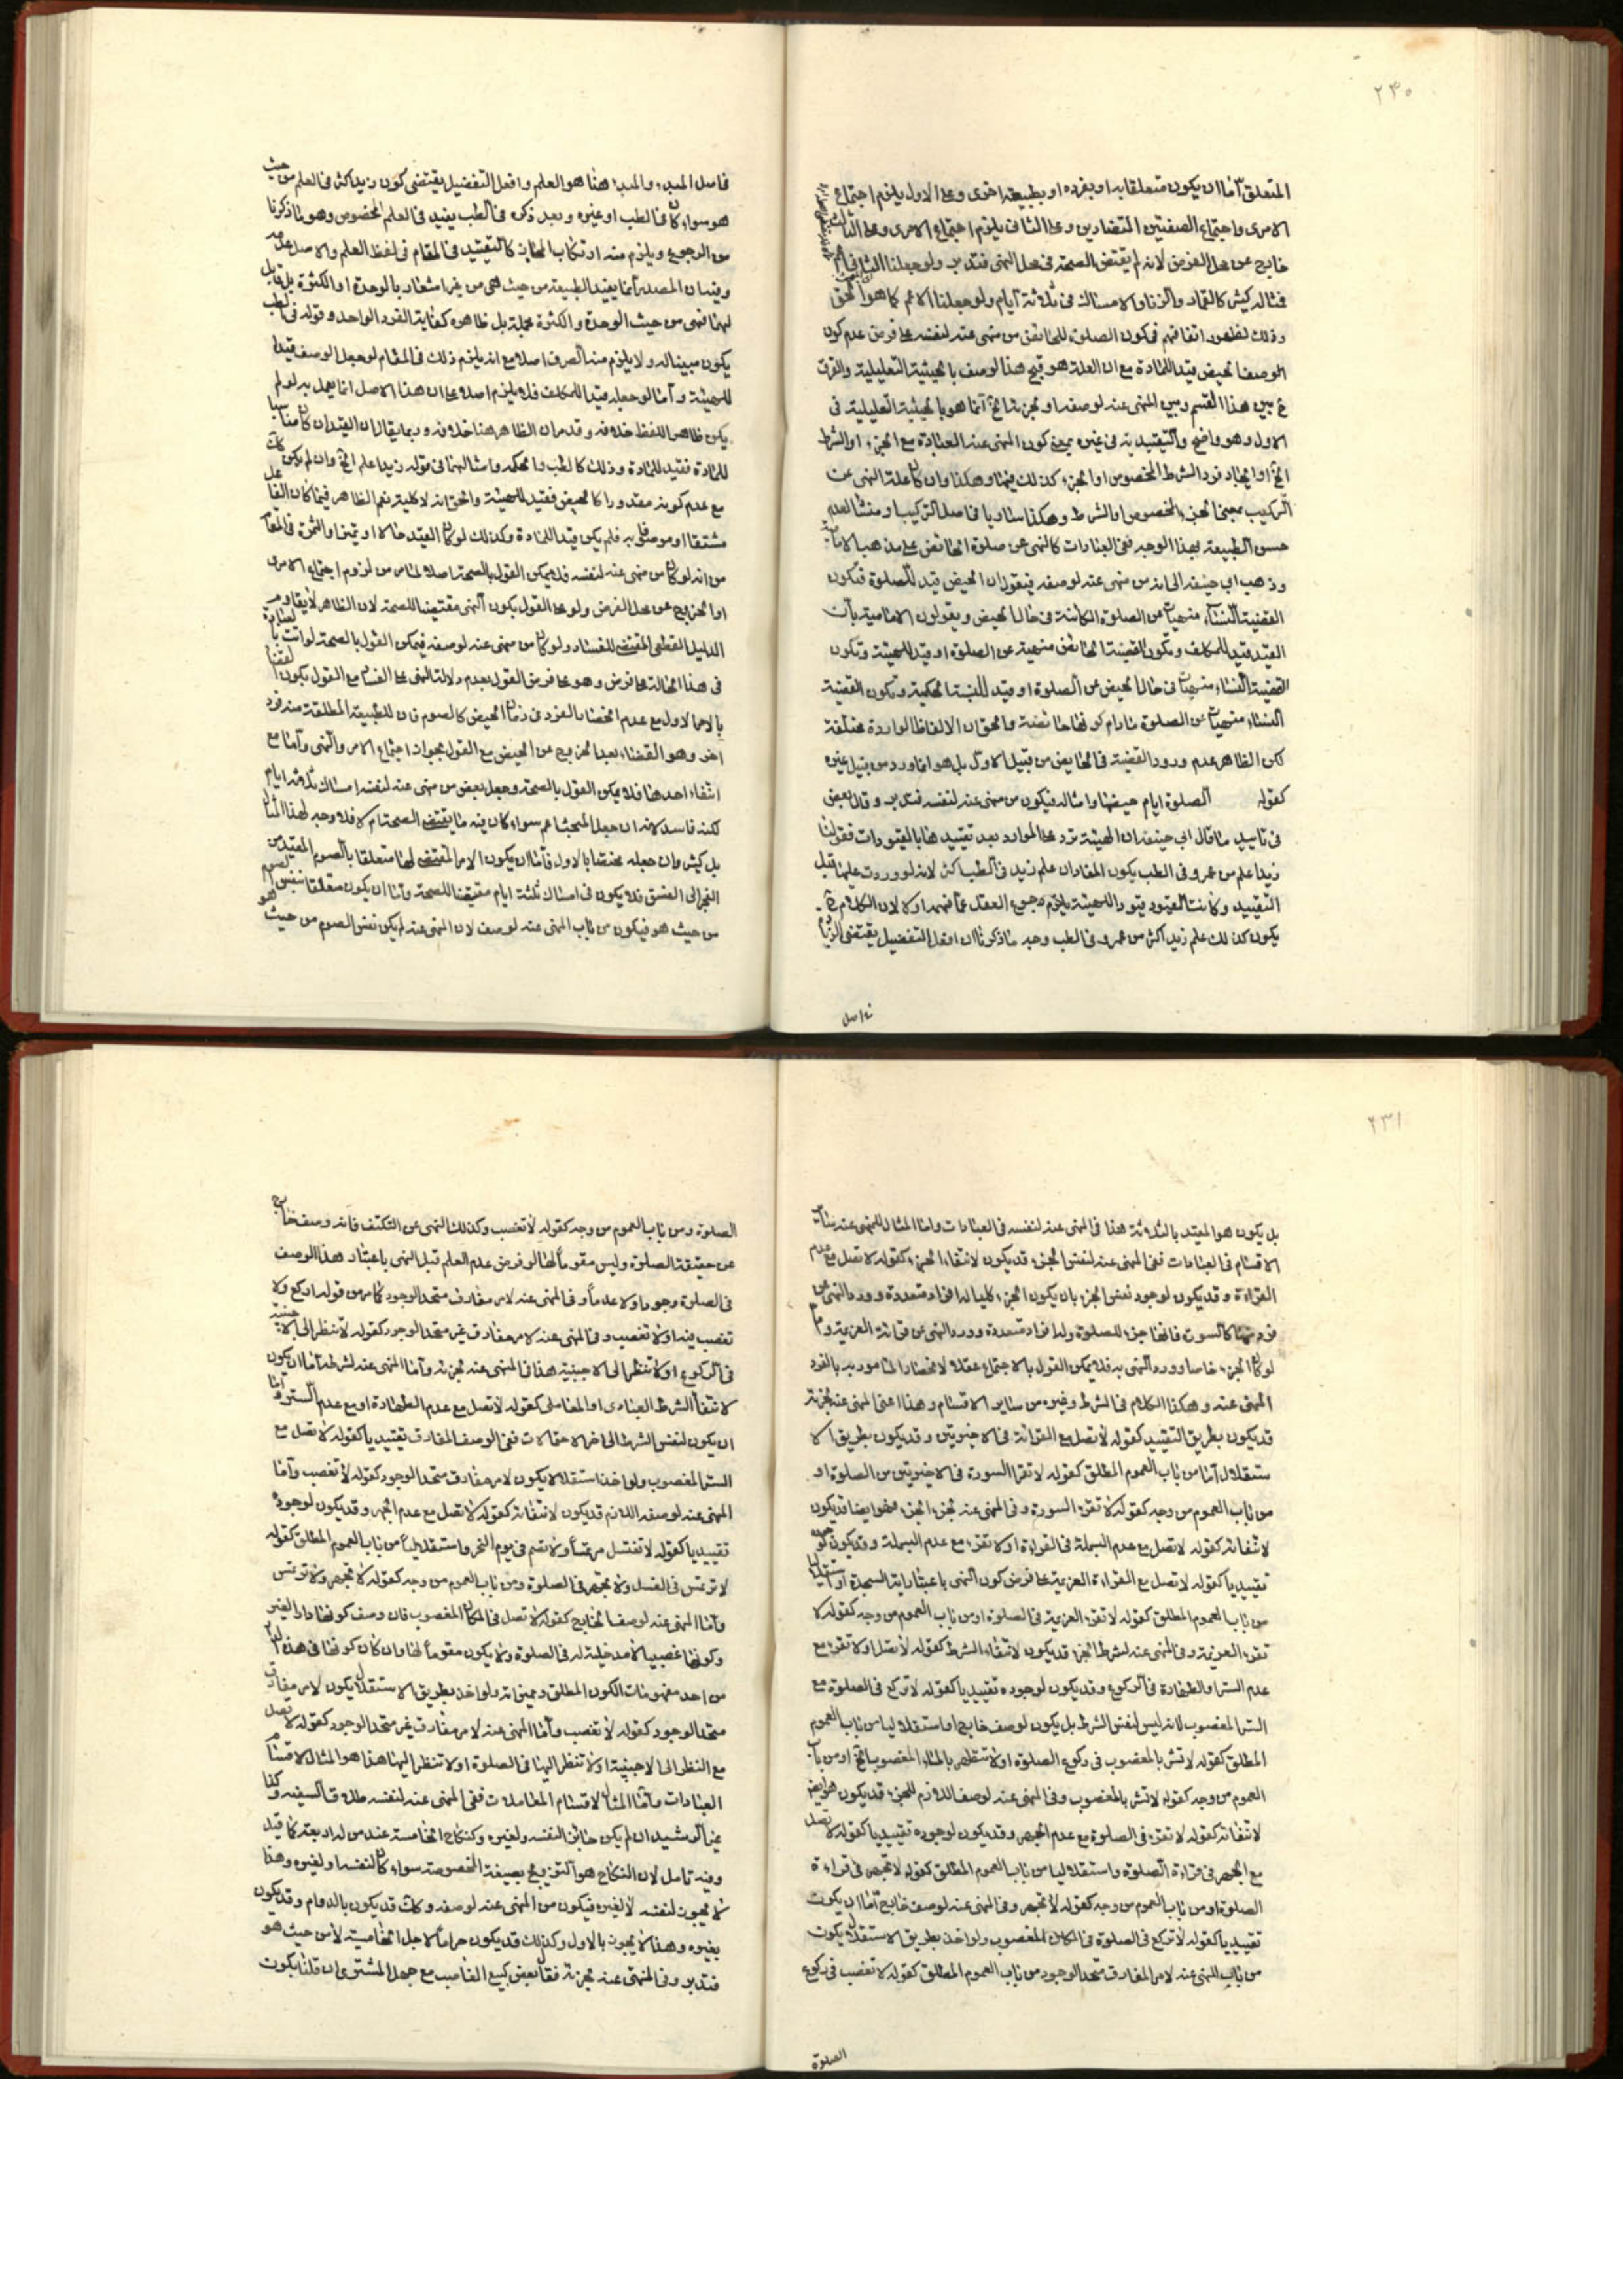 ٢٣٠
المتعلق اما ان يكون متعلقا به او بفرده او بطبيعة اخرى وعلى الاول يلزم اجتماع
الامرى واجتماع الصفتين المتضادين وعلى الثانى يلزم اجتماع الامرى وعلى الثالث
خارج عن محل الفرض لانه لم يقتض الصحة فى محل النهى فتدبر ولو جعلنا الثانى
فمثاله كثير كالقمار والزنا والامساك فى ثلاثة ايام ولو جعلنا الاعم كما هو الحق
وذلك لظهور اتفاقهم فى كون الصلوة للحائض من منهى عنه لنفسه على فرض عدم كون
الوصف الحيض قيد للمادة مع ان العلة هو قبح هذا الوصف بالحيثية التعليلية والفرق
ح بين هذا القسم وبين المنهى عنه لوصفه او لجزئه الخ انما هو بالحيثية التعليلية فى
الاول وهو واضح والتقييدية فى غيره بمعنى كون المنهى عنه العبادة مع الجزء او الشرط
الخ او ايجاد فرد الشرط المخصوص او الجزء كذلك فيها وهكذا وان كان علة النهى عن
التركيب بمعنى الجزء المخصوص او الشرط وهكذا مساويا فى اصل التركيب ومنشأ لعدم
حسن الطبيعة بهذا الوجه ففى العبادات كالنهى عن صلوة الحائض على مذهب الامامية
وذهب ابى حنيفة الى انه من منهى عنه لوصفه فيقول ان الحيض قيد للصلوة فيكون
القضية النساء منهيات عن الصلوة الكائنة فى حال الحيض ويقولون الامامية بان
القيد قيد للمكلف وتكون القضية الحائض منهية عن الصلوة او قيد للهيئة وتكون
القضية النساء منهيات فى حال الحيض عن الصلوة او قيد للنسبة الحكمية وتكون القضية
النساء منهيات عن الصلوة مادام كونها حائضة والحق ان الالفاظ الواردة مختلفة
لكن الظاهر عدم ورود القضية فى الحائض من قبيل الاول بل هو انما ورد من قبيل غيره
كقوله الصلوة ايام حيضها وامثاله فيكون من منهى عنه لنفسه فتدبر وقال بعض
فى تاييد ما قال ابى حنيفة ان الهيئة ترد على الموارد بعد تقييدها بالقيودات فقولنا
زيد اعلم من عمرو فى الطب يكون المفاد ان علم زيد فى الطب اكثر لانه لو وردت عليها قبل
التقييد وكانت القيود قيودا للهيئة يلزم رجوع العقل عما فهمه اولا لان الكلام ح
يكون كذلك علم زيد اكثر من عمرو فى الطب وجه ما ذكرنا ان افعل التفضيل يقتضى الزيادة
فى اصل
فى اصل المبدء والمبدء هنا هو العلم وافعل التفضيل يقتضى كون زيد اكثر فى العلم من حيث
هو سواء كان فى الطب او غيره وبعد ذكره فى الطب يفيد فى العلم المخصوص وهو ما ذكرنا
من الرجوع ويلزم منه ارتكاب المجاز كالتقييد فى المقام فى لفظ العلم والاصل عدمه
وفيه ان المصدر انما يفيد الطبيعة من حيث هى من غير اشعار بالوحدة او الكثرة بل قابل
لهما فهى من حيث الوحدة والكثرة مجملة بل ظاهره كفاية الفرد الواحد وقوله فى الطب
يكون مبينا له ولا يلزم منه الصرف اصلا مع انه يلزم ذلك فى المقام لو جعل الوصف قيدا
للهيئة واما لو جعله قيدا للمكلف فلا يلزم اصلا على ان هذا الاصل انما يعمل به لو لم
يكن ظاهر اللفظ خلافه وقد مر ان الظاهر هنا خلافه وربما يقال ان القيد ان كان مناسبا
للمادة فقيد للمادة وذلك كالطب والحكمة وامثالهما فى قوله زيد اعلم الخ وان لم يكن كذلك
مع عدم كونه مقدورا كالحيض فقيد للهيئة والحق انه لا كلية نعم الظاهر فيما كان الفاعل
مشتقا او موصولا به فلم يكن قيد للمادة وكذلك لو كان القيد حالا او تميزا والثمرة فى المقام
من انه لو كان من منهى عنه لنفسه فلا يمكن القول بالصحة اصلا لما مر من لزوم اجتماع الامرى
او الخروج عن محل الفرض ولو على القول بكون النهى مقتضيا للصحة لان الظاهر لا يقاوم
الدليل القطعى المقتضى للفساد ولو كان من منهى عنه لوصفه فيمكن القول بالصحة لو اتت بالصلوة
فى هذا الحالة على فرض وهو على فرض القول بعدم دلالة النهى على الفساد مع القول بكون القضاء
بالامر الاول مع عدم انحصار الفرد فى زمان الحيض كالصوم فان للطبيعة المطلقة منه فرد
اخر وهو القضاء بعد الخروج عن الحيض مع القول بجواز اجتماع الامر والنهى واما مع
انتفاء احدهما فلا يمكن القول بالصحة وجعل بعض من منهى عنه لنفسه امساك ثلاثة ايام
لكنه فاسد لانه ان جعل المبحث اعم سواء كان فيه ما يقتضى الصحة ام لا فلا وجه لهذا المثال
بل كثير وان جعله مختصا بالاول فاما ان يكون الامر المقتضى لها متعلقا بالصوم المقيد من
الفجر الى الغسق فلا يكون فى امساك ثلثة ايام مقتضيا للصحة واما ان يكون متعلقا بنفس الصوم
من حيث هو فيكون من باب المنهى عنه لوصف لان المنهى عنه لم يكن نفس الصوم من حيث هو
٢٣١
بل يكون هو المقيد بالثلاثة هذا فى المنهى عنه لنفسه فى العبادات واما المثال للمنهى عنه سائر
الاقسام فى العبادات ففى المنهى عنه لنفس الجزء قد يكون لانتفاء الجزء كقوله لا تصل مع عدم
القراءة وقد يكون لوجود نفس الجزء بان يكون الجزء كليا له افراد متعددة وورد النهى عن
فرد منها كالسورة فانها جزء للصلوة ولها افراد متعددة وورد النهى عن قرائة العزيمة واما
لو كان الجزء خاصا وورد النهى به فلا يمكن القول بالاجتماع عقلا لانحصار المامور به بالفرد
المنهى عنه وهكذا الكلام فى الشرط وغيره من ساير الاقسام وهذا اعنى المنهى عنه لجزئه
قد يكون بطريق التقييد كقوله لا تصل مع القرائة فى الاخيرتين وقد يكون بطريق الا
ستقلال اما من باب العموم المطلق كقوله لا تقرا السورة فى الاخيرتين من الصلوة او
من باب العموم من وجه كقوله لا تقرء السورة وفى المنهى عنه لجزء الجزء فهو ايضا قد يكون
لانتفائه كقوله لا تصل مع عدم البسملة فى القراءة او لا تقرء مع عدم البسملة وقد يكون لوجوده
تقييديا كقوله لا تصل مع القراءة العزيمة على فرض كون النهى باعتبار اية السجدة او استقلاليا
من باب العموم المطلق كقوله لا تقرء العزيمة فى الصلوة او من باب العموم من وجه كقوله لا
تقرء العزيمة وفى المنهى عنه لشرط الجزء قد يكون لانتفاء الشرط كقوله لا تصل او لا تقرء مع
عدم الستر او الطهارة فى الركوع وقد يكون لوجوده تقييديا كقوله لا تركع فى الصلوة مع
الستر المغصوب لانه ليس لنفس الشرط بل يكون لوصف خارج او استقلاليا من باب العموم
المطلق كقوله لا تستر بالمغصوب فى ركوع الصلوة او لا تتطهر بالماء المغصوب الخ او من باب
العموم من وجه كقوله لا تستر بالمغصوب وفى المنهى عنه لوصف اللازم للجزء قد يكون هو ايضا
لانتفائه كقوله لا تقرء فى الصلوة مع عدم الجهر وقد يكون لوجوده تقييديا كقوله لا تصل
مع الجهر فى قراءة الصلوة واستقلاليا من باب العموم المطلق كقوله لا تجهر فى قراءة
الصلوة او من باب العموم من وجه كقوله لا تجهر وفى المنهى عنه لوصف خارج اما ان يكون
تقييديا كقوله لا تركع فى الصلوة فى المكان المغصوب ولو اخذ بطريق الاستقلال يكون
من باب المنهى عنه لامر المفارق متحد الوجود من باب العموم المطلق كقوله لا تغصب فى ركوع
الصلوة
الصلوة ومن باب العموم من وجه كقوله لا تغصب وكذلك النهى عن التكتف فانه وصف خارج
عن حقيقة الصلوة وليس مقوما لها لو فرض عدم العلم قبل النهى باعتبار هذا الوصف
فى الصلوة وجودا ولا عدما وفى المنهى عنه لامر مفارق متحد الوجود كما مر من قوله اركع ولا
تغصب فيه او لا تغصب وفى المنهى عنه لامر مفارق غير متحد الوجود كقوله لا تنظر الى الاجنبية
فى الركوع او لا تنظر الى الاجنبية هذا فى المنهى عنه لجزئه واما المنهى عنه لشرطه اما ان يكون
لانتفاء الشرط العبادى او المعاملى كقوله لا تصل مع عدم الطهارة او مع عدم الستر واما
ان يكون لنفس الشرط الى اخر الاحتمالات ففى الوصف المفارق تقييديا كقوله لا تصل مع
الستر المغصوب ولو اخذ استقلالا يكون لامر مفارق متحد الوجود كقوله لا تغصب واما
المنهى عنه لوصفه اللازم قد يكون لانتفائه كقوله لا تصل مع عدم الجهر وقد يكون لوجوده
تقييديا كقوله لا تغتسل مرتمسا ولا تصم فى يوم النحر واستقلاليا من باب العموم المطلق كقوله
لا ترتمس فى الغسل ولا تجهر فى الصلوة ومن باب العموم من وجه كقوله لا تجهر ولا ترتمس
واما المنهى عنه لوصف الخارج كقوله لا تصل فى المكان المغصوب فان وصف كونها دار الغير
وكونها غصبيا لا مدخلية له فى الصلوة ولا يكون مقوما لها وان كان كونها فى هذه الدار
من احد مفهومات الكون المطلق ومميزاته ولو اخذ بطريق الاستقلال يكون لامر مفارق
متحد الوجود كقوله لا تغصب واما المنهى عنه لامر مفارق غير متحد الوجود كقوله لا تصل
مع النظر الى الاجنبية او لا تنظر اليها فى الصلوة او لا تنظر اليها هذا هو المثال لاقسام
العبادات واما المثال لاقسام المعاملات ففى المنهى عنه لنفسه طلاق السفيه وكذا
غير الرشيد ان لم يكن جائز النفسه ولغيره وكنكاح الخامسة عند من له اربعة كما قيل
وفيه تامل لان النكاح هو التزويج بصيغة المخصوصة سواء كان لنفسه او لغيره وهذا
لا يجوز لنفسه لا لغيره فيكون من المنهى عنه لوصفه وكذلك قد يكون بالدوام وقد يكون
بغيره وهذا لا يجوز بالاول وكذلك قد يكون حراما لاجل الخامسية لا من حيث هو
فتدبر وفى المنهى عنه لجزئه فقال بعض كبيع الغاصب مع جهل المشترى ان قلنا يكون